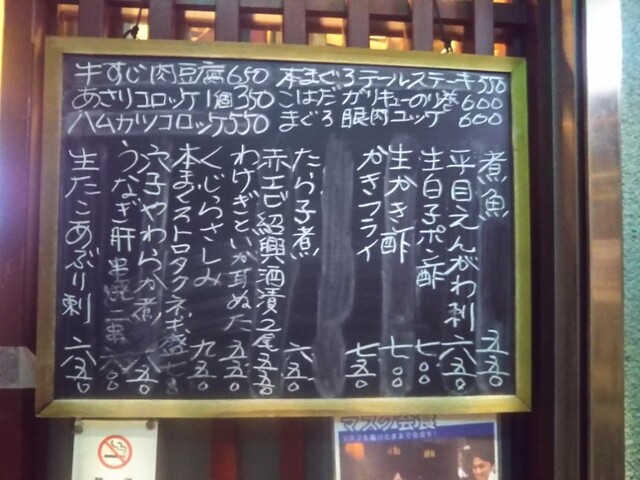 牛すじ肉豆腐650
本まぐろテールステーキ550
あさりコロッケ1個350
こはだガリキューのり巻600
ハムカツコロッケ550
まぐろ眼肉ユッケ600
煮魚 五五〇
平目えんがわ刺 六五〇
生白子ポン酢 七〇〇
生かき酢 七〇〇
かきフライ 七五〇
たら子煮 六五〇
赤エビ紹興酒漬2尾 五五〇
わけぎといか耳ぬた 五五〇
くじらさしみ 九五〇
本まぐろトロタクネギ盛 七五〇
穴子やわらか煮 八五〇
うなぎ肝串焼二串 六〇〇
生たこあぶり刺 六五〇
マスク会食